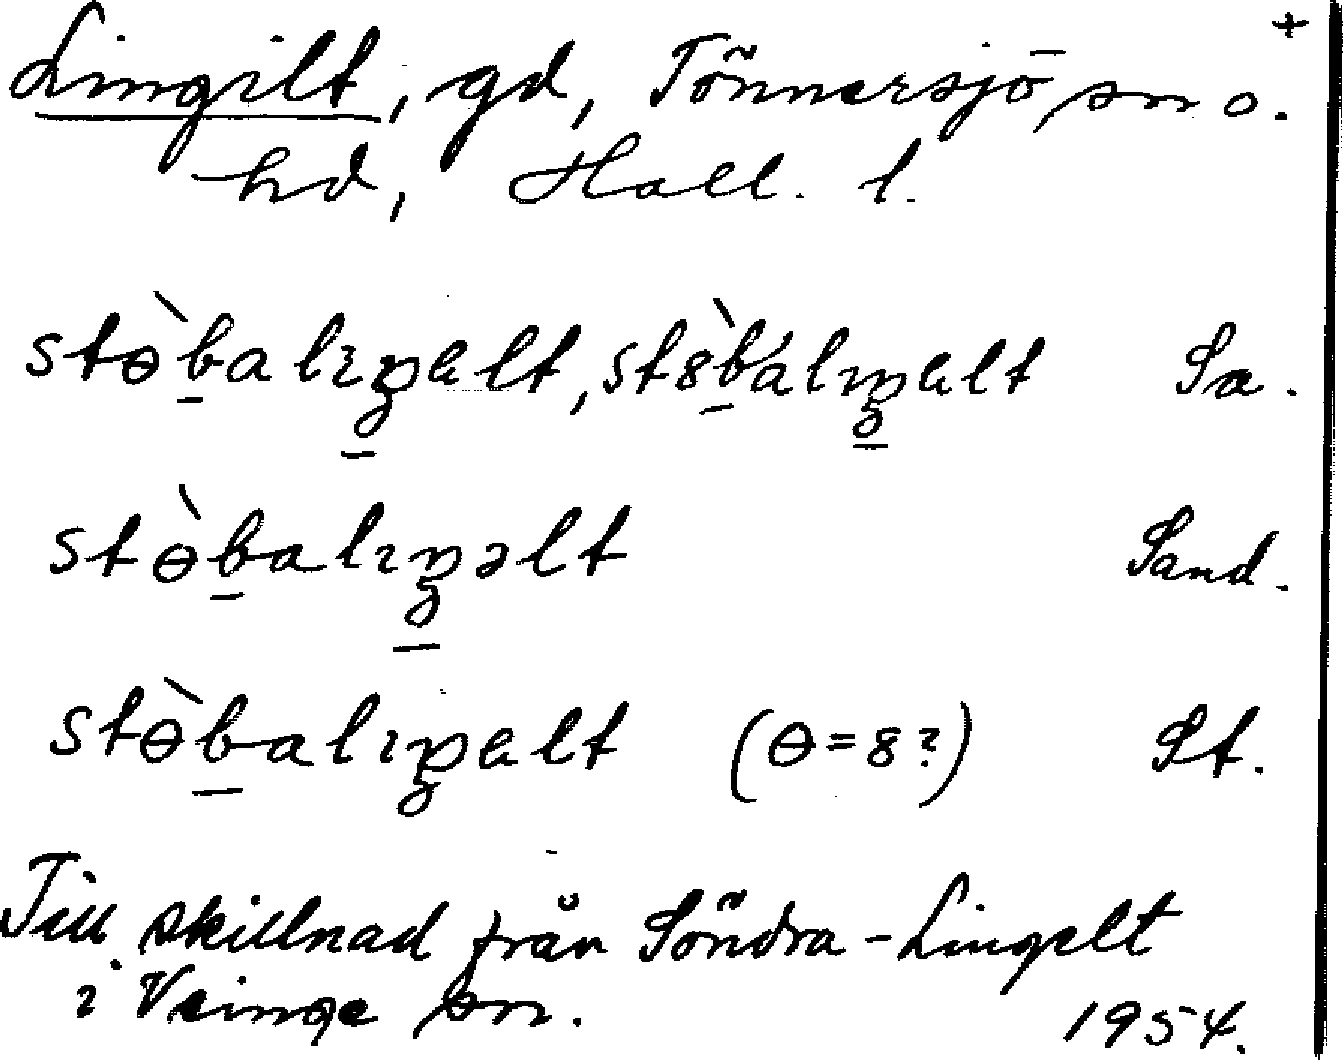 +
Lingilt, gd, Tönnersjö sn o.
hd, Hall. l.
stɵ̀b̲alɪŋ̲ɐlt, st8̀b̲álɪŋ̲ɐlt Sa.
stɵ̀b̲alɪŋ̲əlt Sand.
stɵ̀b̲alɪŋ̲ɐlt (ɵ=8?) St.
Till skillnad från Söndra-Lingelt
i Veinge sn. 1954.